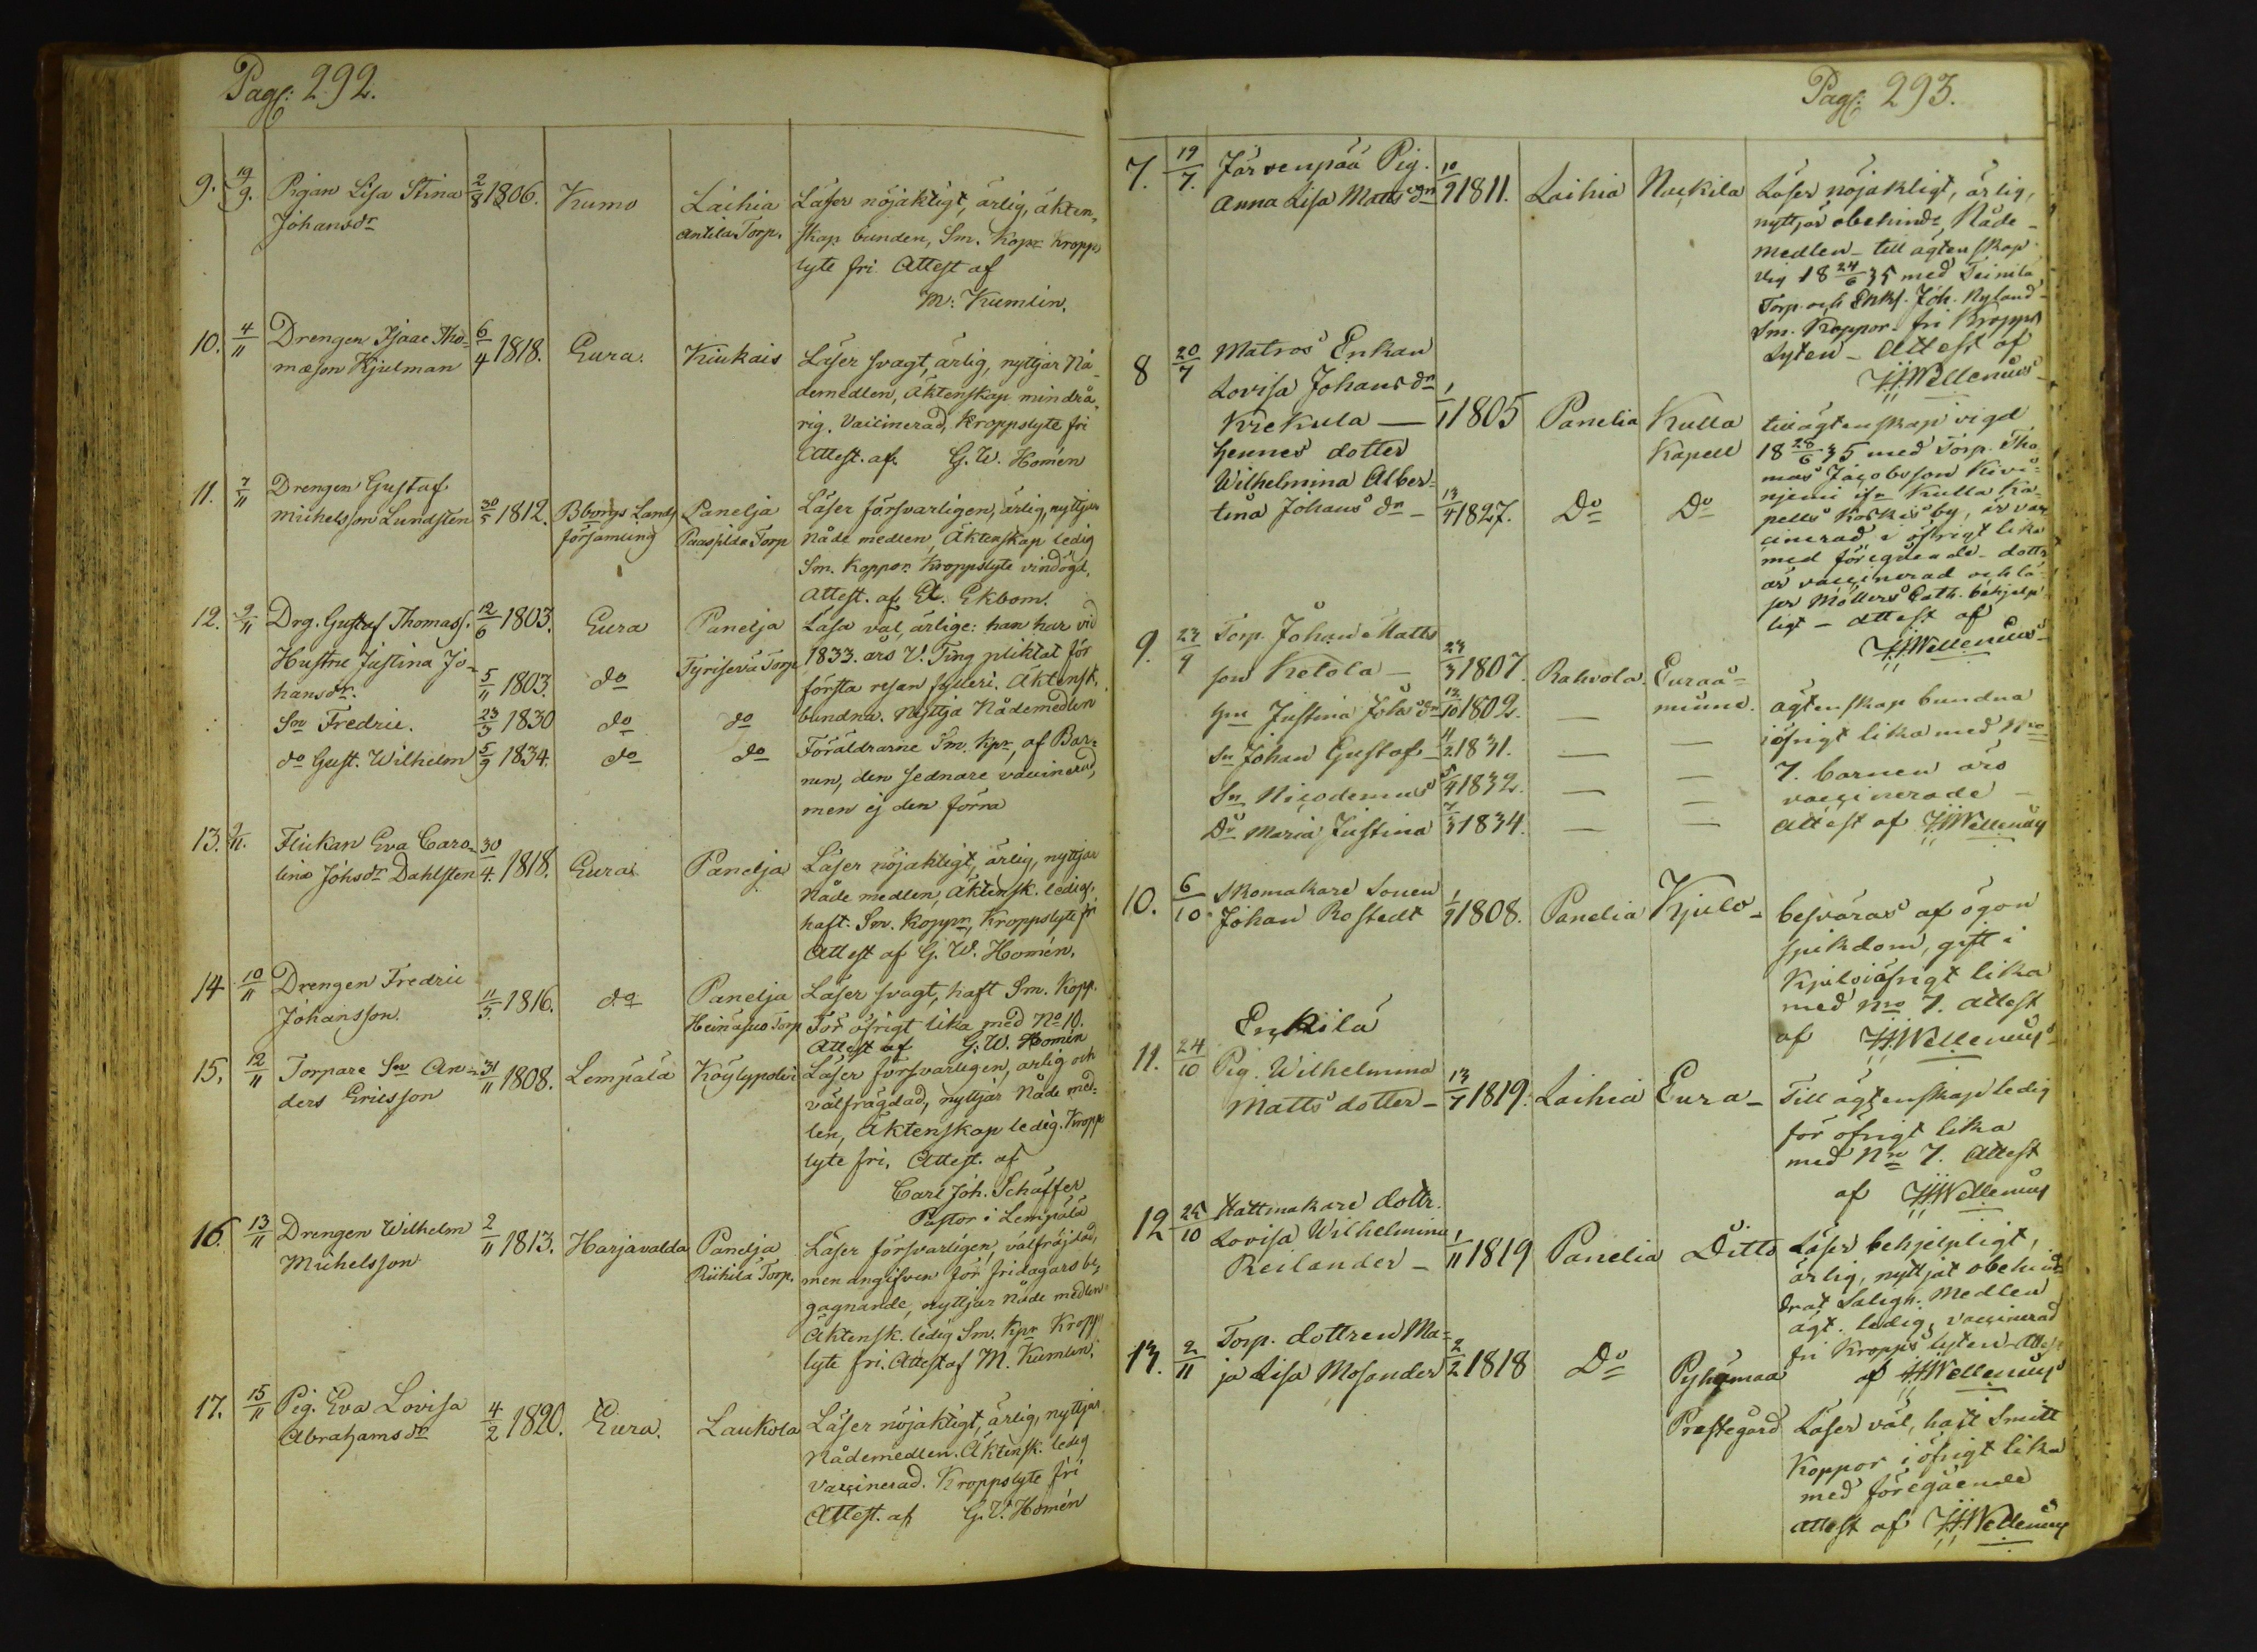 Pag: 292.
9. 19/9. Pigan Lisa Stina 2/8 1806. Kumo Laihia Läser nöjaktigt, ärlig, äkten,
Johansdr Antila Torp. skap bunden, Sm. Kopr Kropps
lyte fri. Attest af
M: Kumlin.
10. 4/11 Drengen Isaac Tho= 6/4 1818. Eura. Kiukais Läser svagt, ärlig, nyttjar Nå
mæson Hjulman demedlen, Äktenskap mindrå,
rig. Vaccinerad, Kroppslyte fri
Attest. af G. W. Homén
11. 7/11 Drengen Gustaf
Michelsson Lundsten 30/5 1812. Bborgs Lands Panelja Läser försvarligen, ärlig, nyttjar
församling Paaspilda Torp Nåde medlen, Äktenskap ledig
Sm. Koppor Kroppslyte vindögd,
Attest. af Ekbom.
12. 9/11 Drg. Gustaf Thomass. 12/6 1803. Eura Panelja Läsa väl, ärlige: han har vid
Hustru Justina Jo- Torp 1833. års V. Ting pliktat för
hansdr. 5/11 1803. do första resan fylleri. Äktensk.
Sn Fredric. 23/3 1830 do do bundna. Nyttja Nådemedlen
do Gust. Wilhelm 5/9 1834. do do Föräldrarne Sm. Kpr, af Bar=
nen, den sednare vaccinerad,
men ej den förra
13. 9/11. Flickan Eva Caro- 30/4. 1818. Eura Panelja Läser nöjaktigt, ärlig, nyttjar
lina Johsdr Dahlsten Nåde medlen, Äktensk. ledig,
haft. Sm. Koppr, Kroppslyte fri
Attest af G. W. Homén.
14 10/11 Drengen Fredric 11/5. 1816. do Panelja Läser svagt, haft Sm. Kopp.
Johansson. Heinäsuo Torp För öfrigt lika med No 10.
Attest af G: W. Homén
15. 12/11 Torpare Sn An- 31/11 1808. Lempälä Köylypolvi Läser försvarligen, ärlig och
ders Ericsson välfrägdad, nyttjar Nåde med=
len, Äktenskap ledig. Kropps
lyte fri, Attest. af
Carl Joh. Schäffer
Pastor i Lempälä
16. 13/11 Drengen Wilhelm 2/11 1813. Harjavalda Panelja Läser försvarligen, välfräjdad,
Michelsson Riikila Torp. men angifven för fridagars be,
gagnande, nyttjar Nåde medlen
Äktensk. ledig Sm. Kpr Kropp
lyte fri. Attest af M. Kumlin.
17. 15/11 Pig. Eva Lovisa 4/2 1820. Eura. Laukola Läser nöjaktigt, ärlig, nyttjar
Abrahamsdr Nådemedlen. Äktensk. ledig
Vaccinerad. Kroppslyte fri
Attest. af G. V. Homén
Pag: 293.
7. 19/7. Järvenpää Pig.
Anna Lisa Matts dr 10/9 1811. Laihia Nackila Läser nöjaktligt, ärlig,
nyttjar obehindr. Nåde-
medlen - till ägtenskap
vig 18 24/6 35 med Teinilä
Torp. och Enkl. Joh. Nyland
Sm. Koppor. fri Kropps
Lyten - Attest af
Wellenius
8 20/7 Matros Enkan
Lovisa Johans dr
Krekula - 1/1 1805 Panelia Kulla till ägtenskap vigd
Hennes dotter Kapell 18 28/6 35 med Torp. Tho
Wilhelmina Alber= mas Jacobsson Kivi=
tina Johans dr - 13/4 1827. Do Do niemi ifr Kulla Ka=
pells Koskis by, är vac
cinerad i öfrigt lika
med föregående - dottr
är vaccinerad och lä=
ser Möllers Cath. behjelp
ligt - Attest af
Wellenius
9. 23/9 Torp. Johan Matts
son Ketola - 23/3 1807. Rahvola. Euraå=
Hru Justina Johs dr 13/10 1802. - minne. ägtenskap bundna
Sn Johan Gustaf - 11/2 1831. - - i öfrigt lika med No
Sn Nicodemus 5/4 1832. - - 7. barnen äro
Dr Maria Justina 7/3 1834. - - vaccinerade -
Attest af Wellenius
10. 6/10. Skomakare Sonen
Johan Rostedt 1/9 1808. Panelia Kjulo - besväras af ögon
sjukdom, gift i
Kjulo i öfrigt lika
med No 7. Attest
af Wellenius
Enkilä
11. 24/10 Pig. Wilhelmina
Matts dotter - 13/7 1819. Laihia Eura - Till ägtenskap ledig
för öfrigt lika
med Nro 7. Attest
af Wellenius
12 25/10 Hattmakare dottr.
Lovisa Wilhelmina
Reilander - 1/11 1819 Panelia Ditto Läser behjelpligt,
ärlig, nyttjat obehind
drat Saligh. Medlen
ägt. ledig, vaccinerad
fri Kropps lyten - Attest
af Wellenius
13. 2/11 Torp. dottren Ma=
ja Lisa Mosander 2/2 1818 Do Pyhämaa
Prestegård Läser väl, haft Smitt
Koppor i öfrigt lika
med föregående
Attest af Wellenius